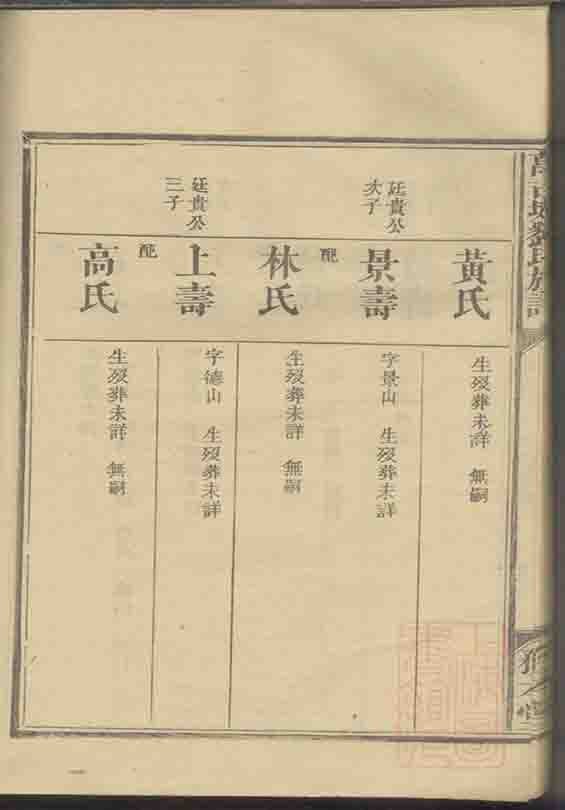 劉氏族譜
黃氏
生歿葬未詳 無嗣
廷貴公
次子
景壽
字景山 生歿葬未詳
配
林氏
生歿葬未詳 無嗣
廷貴公
三子
上壽
字德山 生歿葬未詳
配
高氏
生歿葬未詳 無嗣